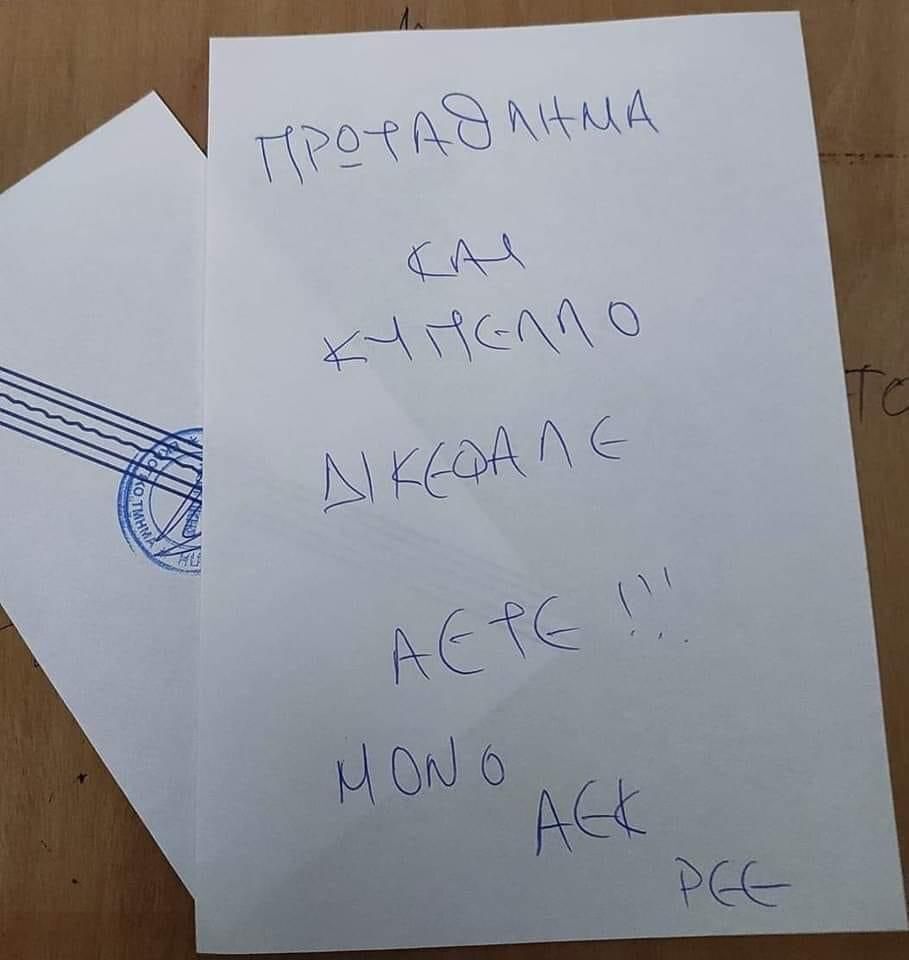 ΠΡΩΤΑΘΛΗΜΑ
ΚΑΙ
ΚΥΠΕΛΛΟ
ΔΙΚΕΦΑΛΕ
ΑΕΤΕ !!!
ΜΟΝΟ
ΑΕΚ
ΡΕΕ
ΤΜΗΜΑ
ΤΟ